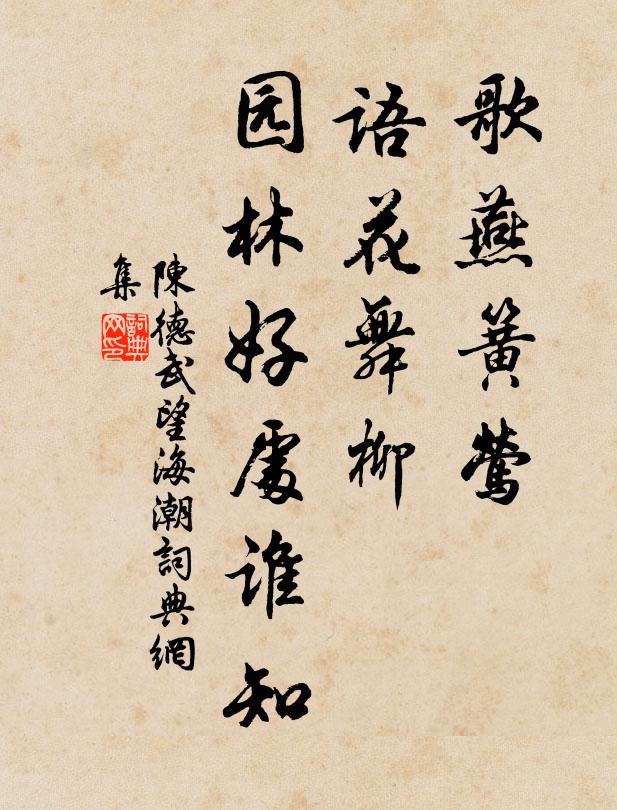 歌燕簧鶯
語花舞柳
园林好處谁知
陳德武望海潮詞典網
集
詞典網印